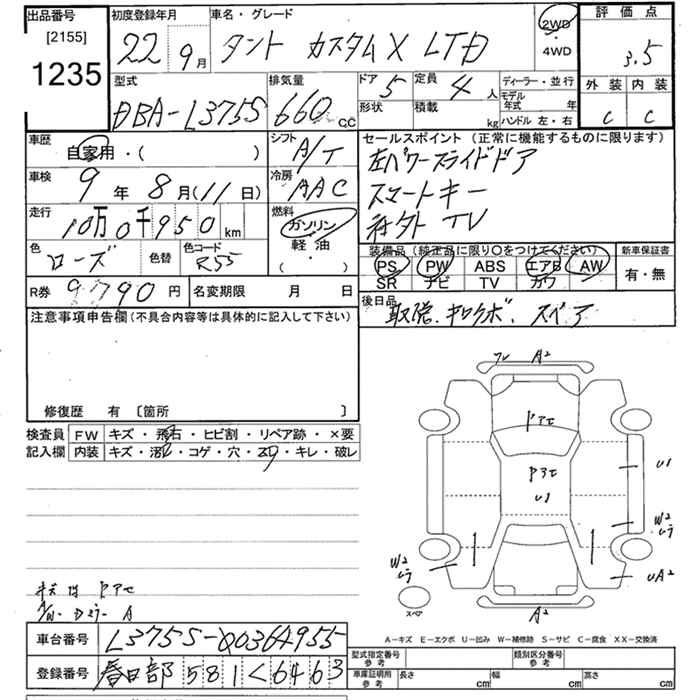 出品番号 初度登録年月 車名・グレード 評価点
[2155] 22年9月 タント カスタムX LTD 2WD 3.5
1235 4WD
型式 排気量 ドア 5 定員 4人 ディーラー・並行 外装 内装
モデル年式 年
DBA-L375S 660CC 形状 積載 kg ハンドル 左・右 C C
車歴 自家用・( ) シフト A/T セールスポイント (正常に機能するものに限ります)
車検 9年8月(11日) 冷房 AAC 左パワースライドドア
スマートキー
走行 10万0千950km 燃料 ガソリン 社外TV
軽油
( ・ )
色 ローズ 色替 色コード R55 装備品 (純正品に限り○をつけてください) 新車保証書
PS PW ABS エアB AW 有・無
SR ナビ TV カワ
R券 9790円 名変期限 月 日 後日品
取説.キロクボ.スペア
注意事項申告欄(不具合内容等は具体的に記入して下さい)
修復歴 有 [箇所 ]
検査員 FW キズ・飛石・ヒビ割・リペア跡・×要
記入欄 内装 キズ・汚レ・コゲ・穴・スレ・キレ・破レ
A2
ドアモ
U1
U1
W2
ムラ
W2
ムラ
UA2
A2
スペア
A-キズ E-エクボ U-凹み W-補修跡 S-サビ C-腐食 XX-交換済
車台番号 L375S-00364955
登録番号 春日部 581 く 6463
型式指定番号 参考 類別区分番号 参考
車庫証明用 参考 長さ cm 幅 cm 高さ cm